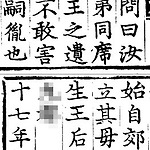 問曰汝
弟同席
王之遺
不敢害
嗣胤也
始自郊
立其母
生王后
十七年